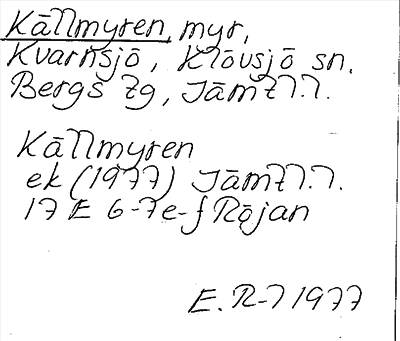 Källmyren, myr,
Kvarnsjö, Klövsjö sn.
Bergs tg, Jämtl.l.
Källmyren
ek (1977) Jämtl.l.
17 E 6-7 e-f Röjan
E. R-l 1977